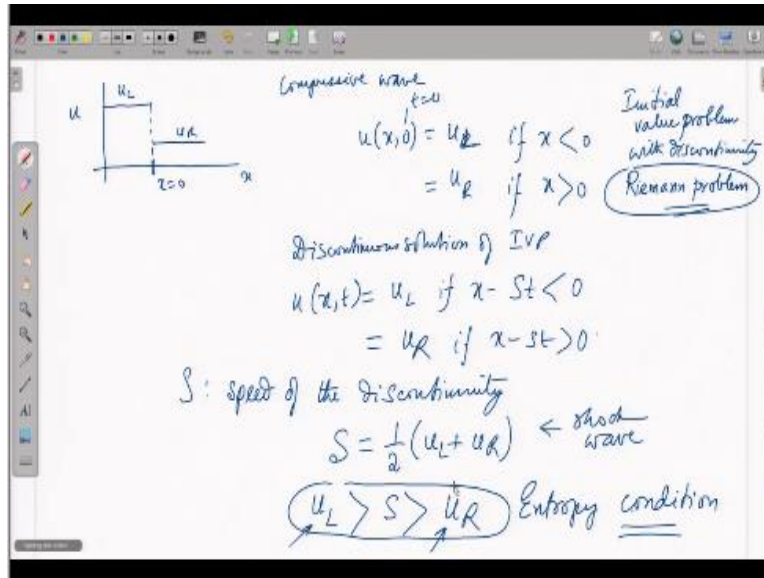 Compressive wave
t=0
u
u_L
u_R
x=0
x
u(x,0) = u_L if x<0
= u_R if x>0
Initial
value problem
with discontinuity
Riemann problem
Discontinuous solution of IVP
u(x,t) = u_L if x- St<0
= u_R if x-St>0
S: speed of the discontinuity
S = 1/2 (u_L + u_R) ← shock
wave
u_L > S > u_R Entropy condition